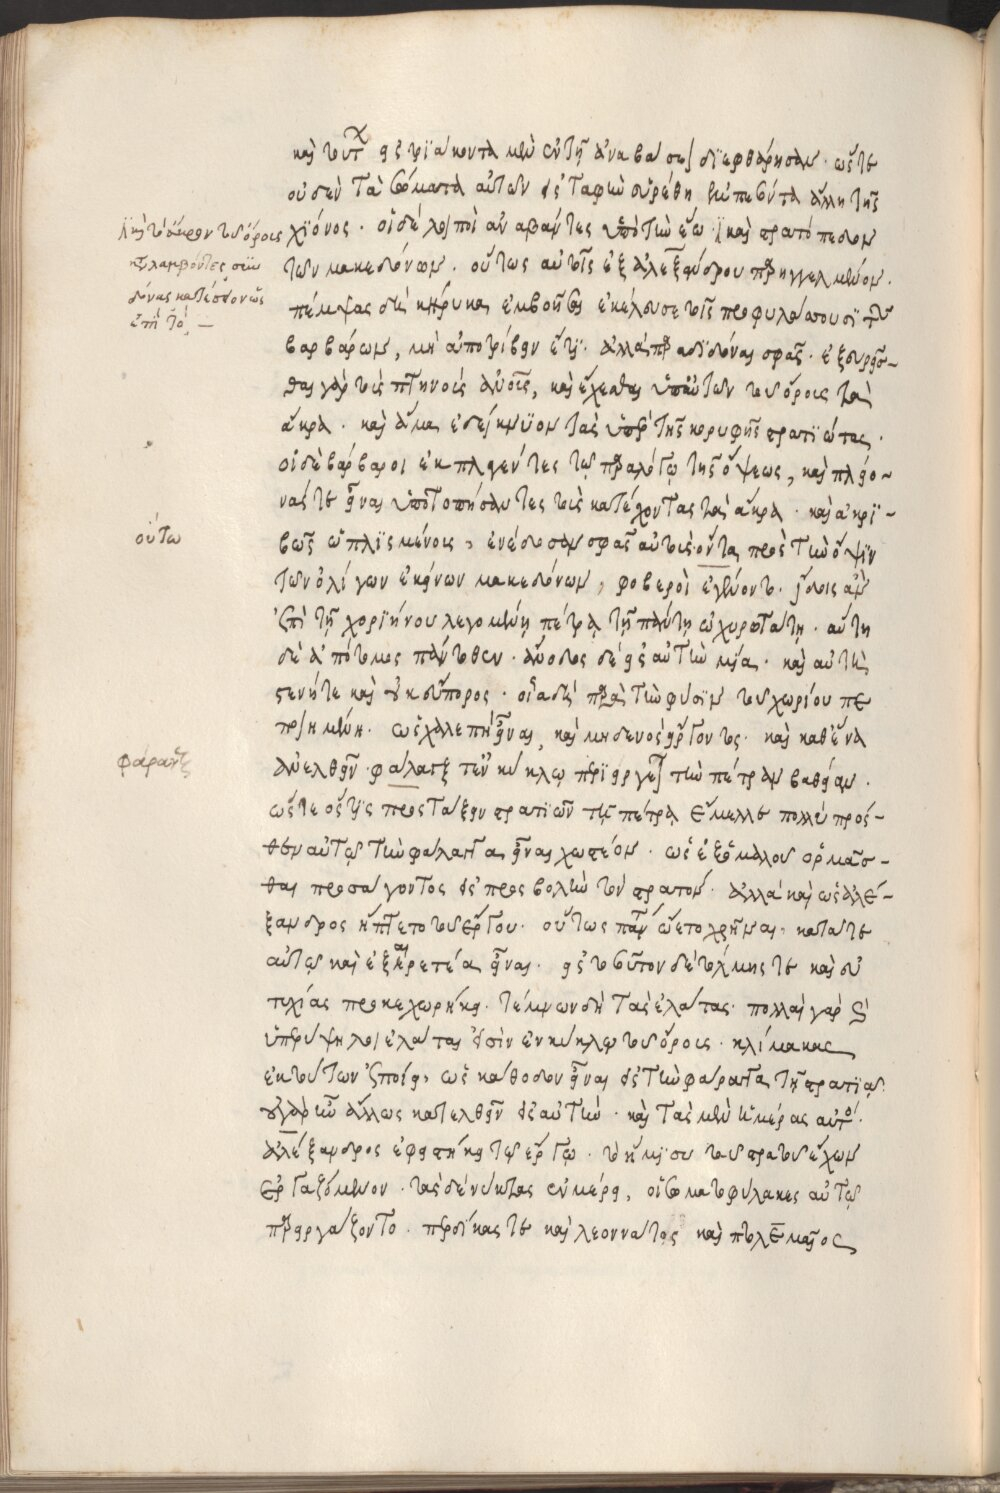 καὶ τούτων ἐς τριάκοντα μὲν ἐν τῇ ἀναβάσει διεφθάρησαν · ὥστε
οὐδὲν τὰ σώματα αὐτῶν ἐς ταφὴν εὑρέθη ἐμπεσόντα ἄλλῃ τῆς
χιόνος · οἱ δὲ λοιποὶ ἀναβάντες ὑπὸ τὴν ἕω · καὶ στρατόπεδον
τῶν μακεδόνων · οὕτως αὐτοῖς ἐξ ἀλεξάνδρου παρηγγελμένον ·
πέμψας δὴ κήρυκα ἐμβοῆσαι ἐκέλευσε τοῖς προφυλάσσουσι τῶν
βαρβάρων, μὴ διατρίβειν ἔτι · ἀλλὰ παραδιδόναι σφᾶς · ἐξευρῆσ-
θαι γὰρ τοὺς πτηνοὺς ἀνθρώπους, καὶ ἔχεσθαι ὑπ' αὐτῶν τοῦ ὄρους τὰ
ἄκρα · καὶ ἅμα ἐδείκνυον τοὺς ὑπὲρ τῆς κορυφῆς στρατιώτας ·
οἱ δὲ βάρβαροι ἐκπλαγέντες τῷ παραλόγῳ τῆς ὄψεως, καὶ πλείο-
νάς τε εἶναι ὑποτοπήσαντες τοὺς κατέχοντας τὰ ἄκρα · καὶ ἀκρι-
βῶς ὡπλισμένους, ἐνέδοσαν σφᾶς αὐτοὺς · οὕτω πρὸς τὴν ὄψιν
τῶν ὀλίγων ἐκείνων μακεδόνων, φοβεροὶ ἐγένοντο ·
ἐπὶ τῇ χοριήνου λεγομένῃ πέτρᾳ τῇ πάντῃ ὀχυρωτάτῃ · αὕτη
δὲ ἀπότομος πάντοθεν · ἄνοδος δὲ ἐς αὐτὴν μία · καὶ αὐτὴ
στενή τε καὶ οὐκ εὔπορος · οἷα δὴ παρὰ τὴν φύσιν τοῦ χωρίου πε
ποιημένη · ὡς χαλεπὴ εἶναι, καὶ μηδενὸς εἴργοντος · καὶ καθ' ἕνα
ἀνελθεῖν · φάλαγξ τε ἐν κύκλῳ περιείργει τὴν πέτραν βαθεῖα ·
ὥστε ὅστις προσάξειν στρατιὰν τῇ πέτρᾳ ἔμελλε πολὺ πρόσ-
θεν αὐτῷ τὴν φάλαγγα εἶναι χωστέον · ὡς ἐξ ὁμάλου ὁρμᾶσ-
θαι προσάγοντος ἐς προσβολὴν τὸν στρατόν · ἀλλὰ καὶ ὣς ἀλέ-
ξανδρος ἥπτετο τοῦ ἔργου · οὕτως πάντα ᾤετο χρῆναι · βατά τε
αὐτῷ καὶ ἐξαιρετέα εἶναι · ἐς τοσοῦτον δὲ τόλμης τε καὶ εὐ
τυχίας προκεχωρήκει · τέμνων δὴ τὰς ἐλάτας · πολλαὶ γὰρ καὶ
ὑπερύψηλοι ἐλάται ἦσαν ἐν κύκλῳ τοῦ ὄρους · κλίμακας
ἐκ τούτων ἐποίει, ὡς κάθοδον εἶναι ἐς τὴν φάραγγα τῇ στρατιᾷ
οὐ γὰρ ἦν ἄλλως κατελθεῖν ἐς αὐτὴν · καὶ τὰς μὲν ἡμέρας αὐτὸς ·
ἀλέξανδρος ἐφειστήκει τῷ ἔργῳ · τὸ ἥμισυ τοῦ στρατοῦ ἔχων
ἐργαζόμενον · τὰς δὲ νύκτας ἐν μέρει, οἱ σωματοφύλακες αὐτῷ
παρειργάζοντο · περδίκκας τε καὶ λεοννάτος καὶ πτολεμαῖος
καὶ τὸ ἄκρον τοῦ ὄρους
καταλαμβόντες σιν
δόνας κατέσειον ὡς
ἐπὶ τὸ
οὕτω
φάραγξ